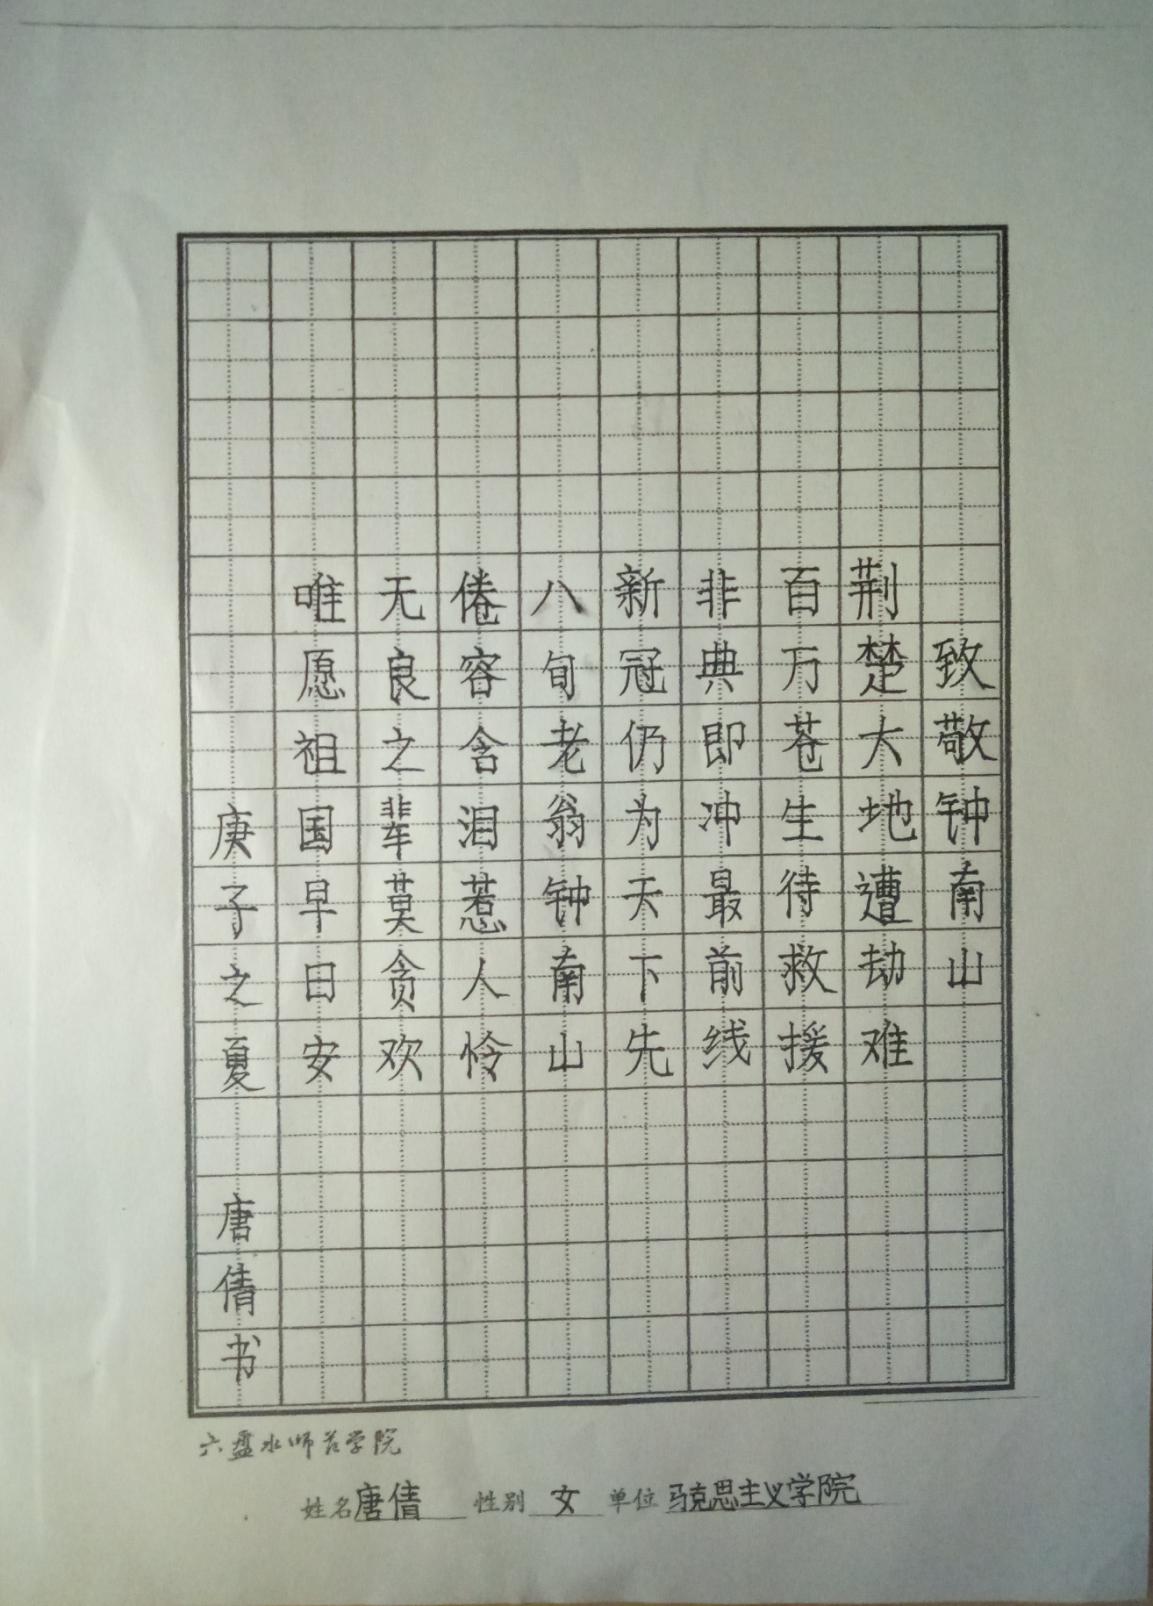 致敬钟南山
荆楚大地遭劫难
百万苍生待救援
非典即冲最前线
新冠仍为天下先
八旬老翁钟南山
倦容含泪惹人怜
无良之辈莫贪欢
唯愿祖国早日安
庚子之夏 唐倩书
六盘水师范学院
姓名唐倩 性别女 单位马克思主义学院